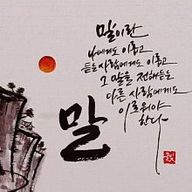 말이란
나에게도 이롭고
듣는 사람에게도 이롭고
그 말을 전해듣는
다른 사람에게도
이로워야
한다
말